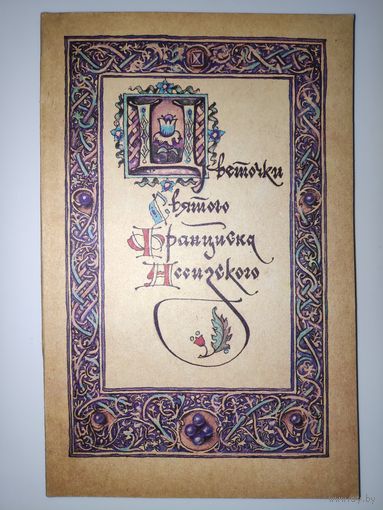 Цветочки
Святого
Франциска
Ассизского